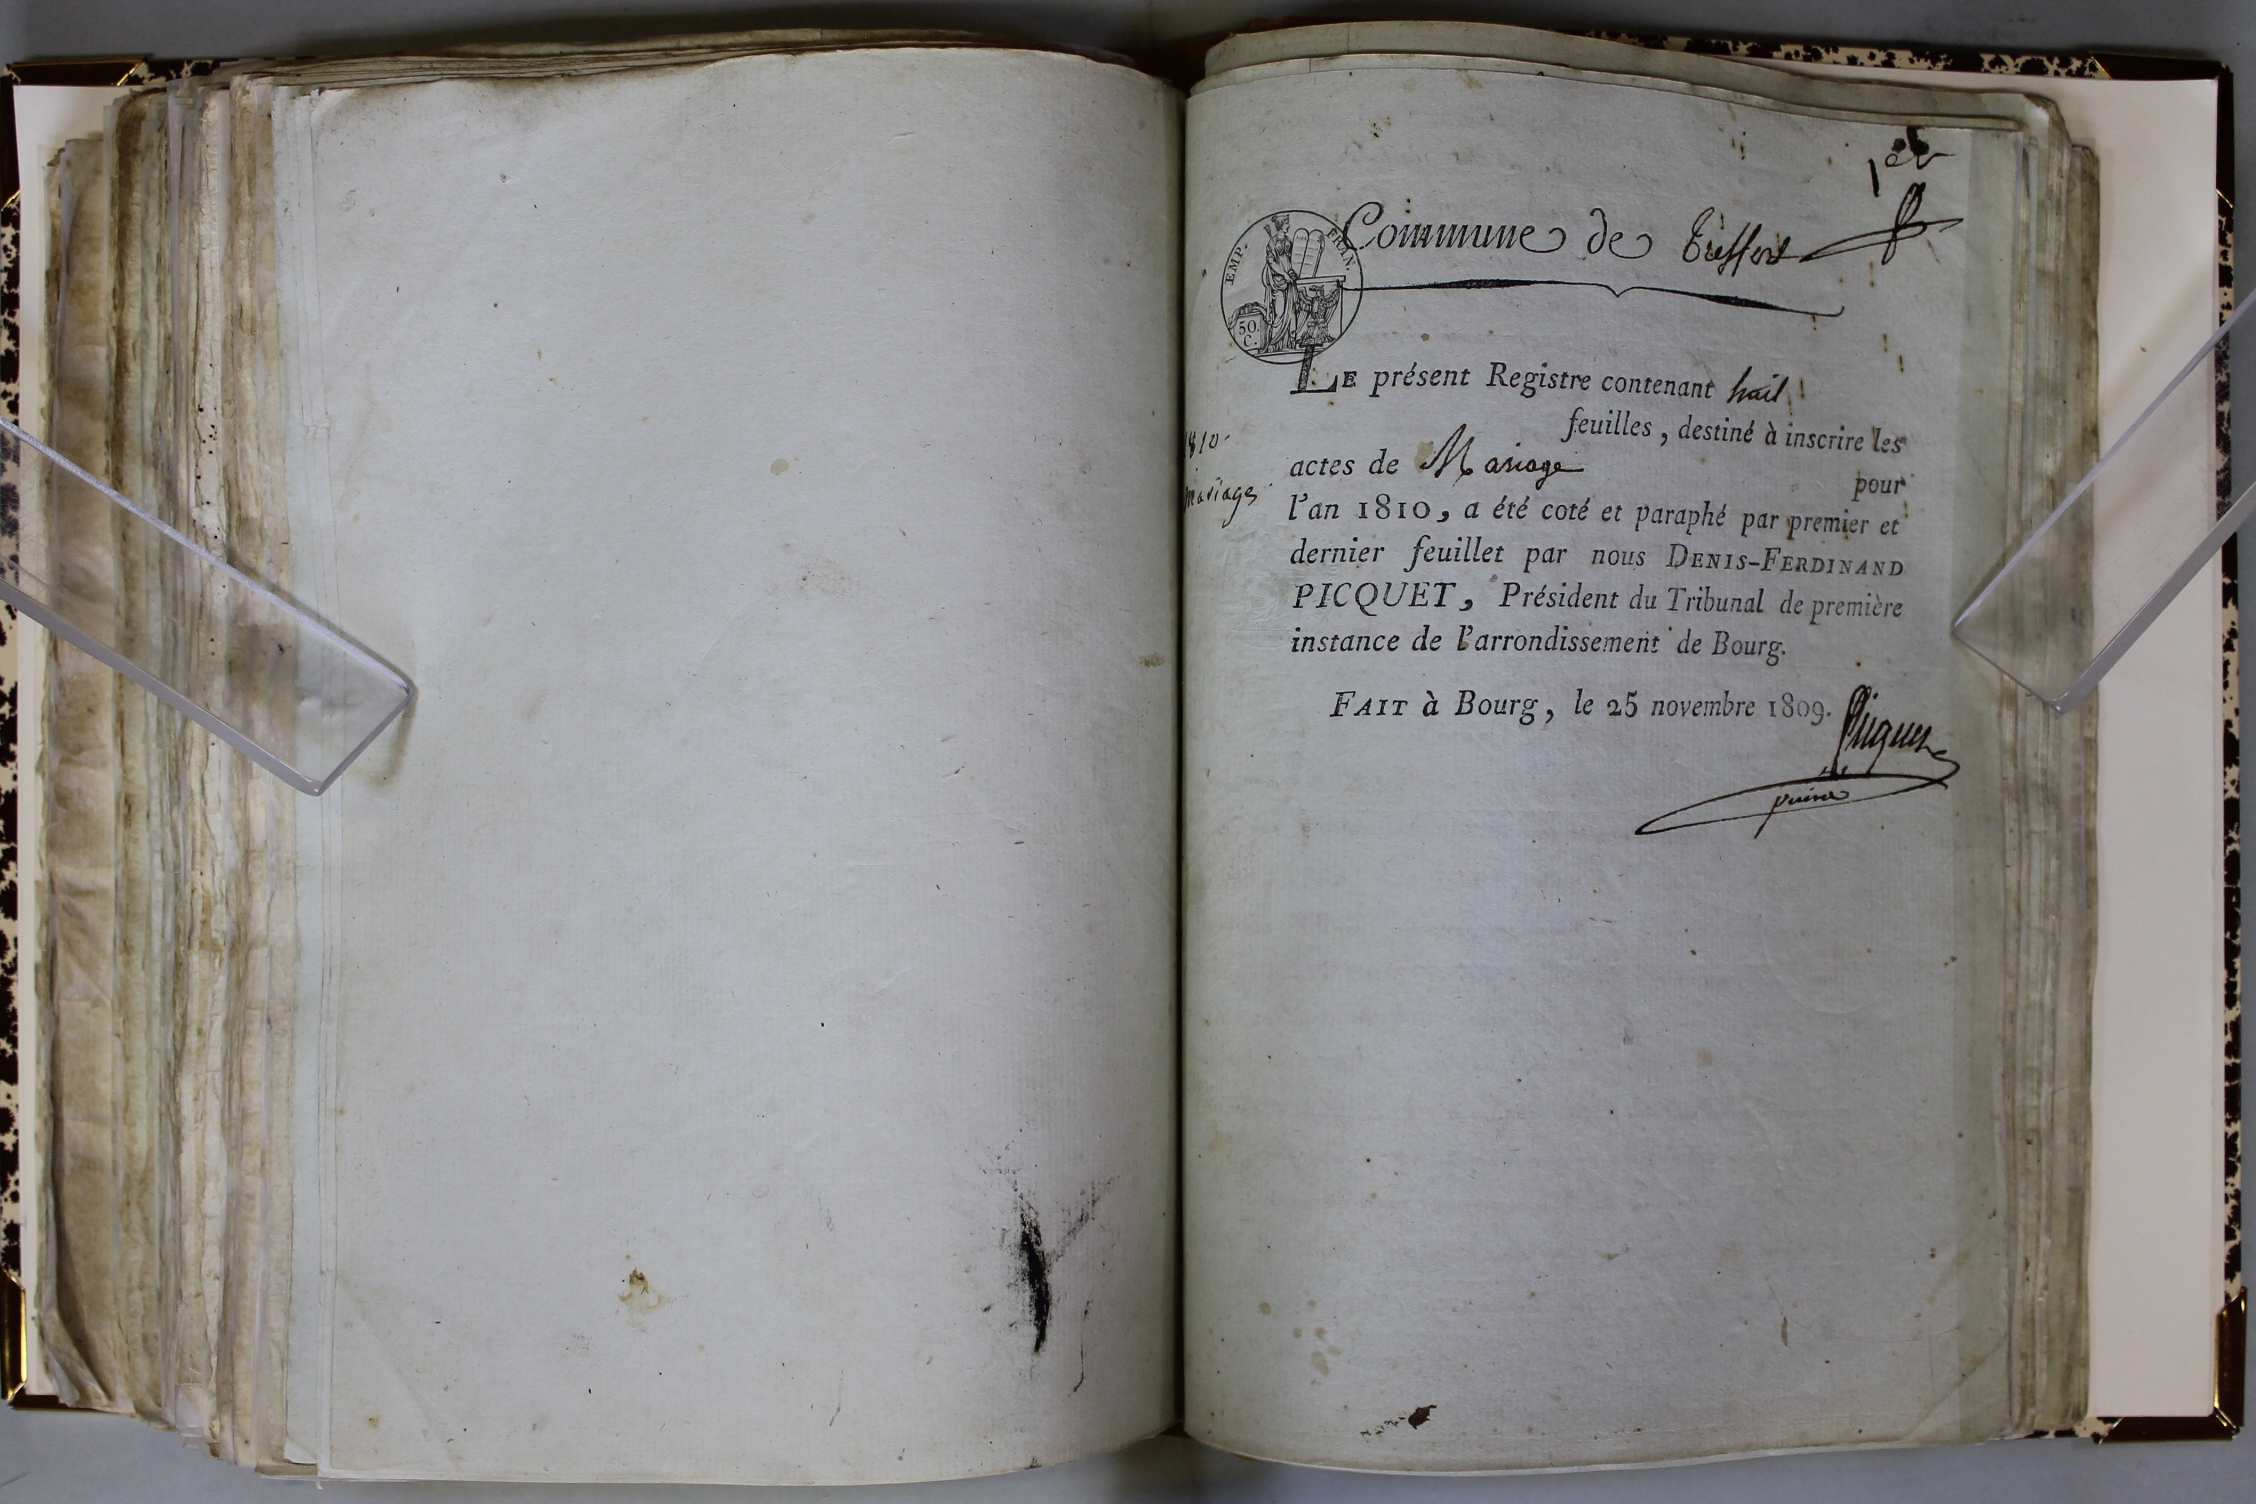 1er
Commune de Treffort
EMP. FRAN.
50.
C.
LE présent Registre contenant huit
feuilles, destiné à inscrire les
1810.
mariages
actes de Mariage
pour
l'an 1810, a été coté et paraphé par premier et
dernier feuillet par nous DENIS-FERDINAND
PICQUET, Président du Tribunal de première
instance de l'arrondissement de Bourg.
FAIT à Bourg, le 25 novembre 1809.
Picquet